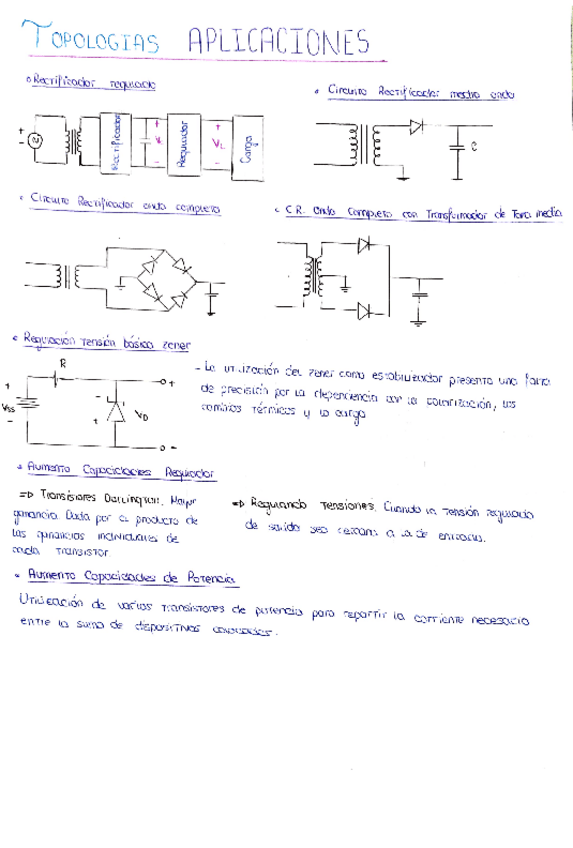 TOPOLOGIAS APLICACIONES
Rectificador regulado
Circuito Rectificador media onda
+
-
Rectificador
+
-
Regulador
+
VL
-
Carga
C
Circuito Rectificador onda completa
C.R. Onda Completa con Transformador de Toma media
Regulación Tensión básica zener
R
+
Vss
-
-
+
VD
+
-
- La utilización del zener como estabilizador presenta una falta
de precisión por la dependencia con la polarización, los
cambios térmicos y la carga
Aumento Capacidades Regulador
=> Transistores Darlington. Mayor
ganancia. Dada por el producto de
las ganancias individuales de
cada transistor
=> Regulando Tensiones. Cuando la tensión regulada
de salida sea cercana a la de entrada.
Aumento Capacidades de Potencia
Utilización de varios transistores de potencia para repartir la corriente necesaria
entre la suma de dispositivos